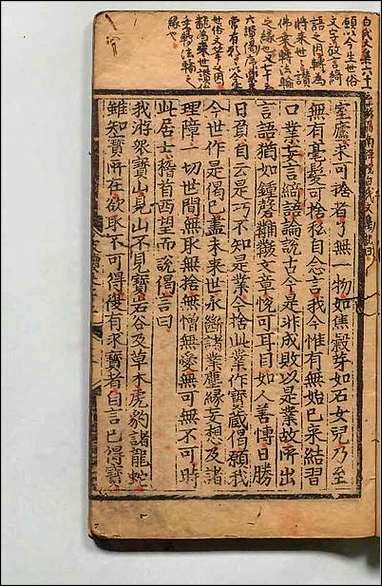 白氏文集六十一蘇州南禪院白氏文集記曰
願以今生世俗
文字放言綺
語之因轉為
將來世々讃
佛乘轉法輪
之緣也
六讃偈序
常有願
世俗文筆之因
翻為來世讃佛
乘轉法輪之
緣也
室廬求可捨者了無一物如焦穀芽如石女兒乃至
無有毫髮可捨私自念言我今惟有無始已來結習
口業妄言綺語論說古今是非成敗以是業故所出
言語猶如鍾磬黼黻文章悅可耳目如人善博日勝
日負自云是巧不知是業今捨此業作寶藏偈願我
今世作是偈已盡未來世永斷諸業塵緣妄想及諸
理障一切世間無取無捨無憎無愛無可無不可時
此居士稽首西望而說偈言曰
我游衆寶山見山不見寶岩谷及草木虎豹諸龍蛇
雖知寶所在欲取不可得復有求寶者自言已得寶